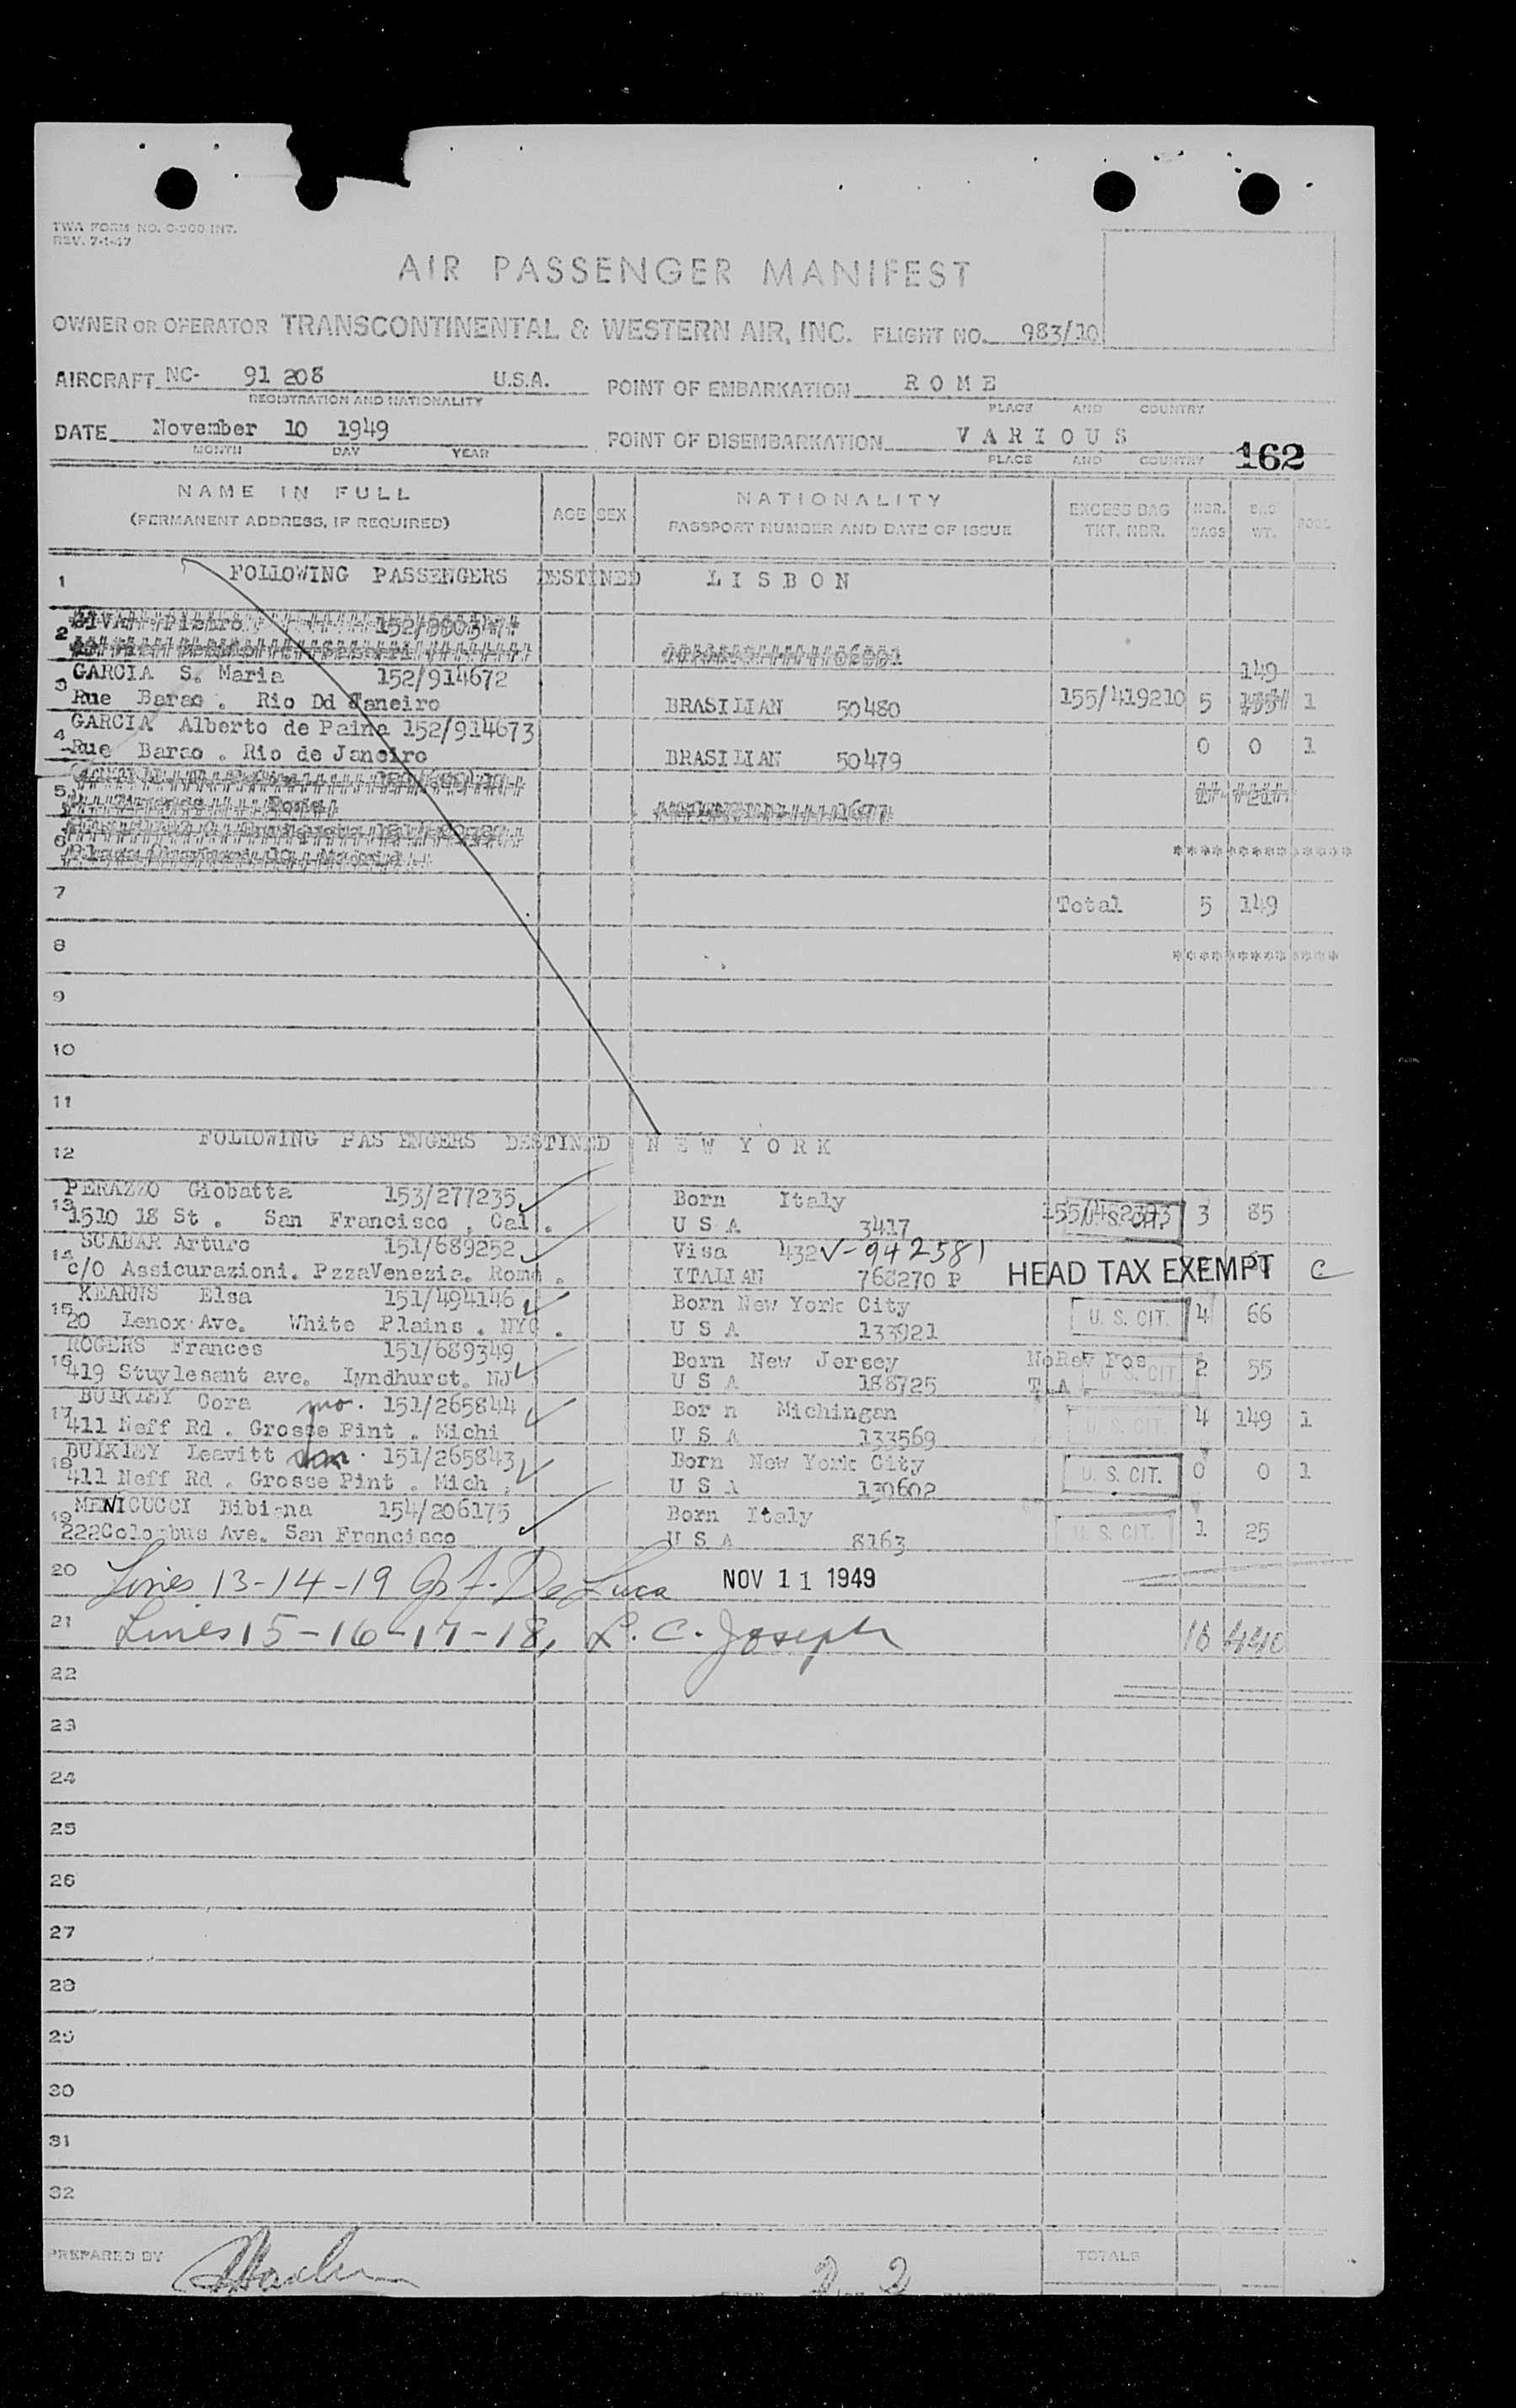 TWA FORM NO. O-200 INT.
REV. 7-1-47
AIR PASSENGER MANIFEST
OWNER OR OPERATOR TRANSCONTINENTAL & WESTERN AIR, INC. FLIGHT NO. 983/10
AIRCRAFT NC- 91 208 U.S.A. POINT OF EMBARKATION R O M E
REGISTRATION AND NATIONALITY PLACE AND COUNTRY
DATE November 10 1949 POINT OF DISEMBARKATION V A R I O U S
MONTH DAY YEAR PLACE AND COUNTRY 162
NAME IN FULL AGE SEX NATIONALITY EXCESS BAG NBR. BAG POOL
(PERMANENT ADDRESS, IF REQUIRED) PASSPORT NUMBER AND DATE OF ISSUE TKT. NBR. BAGS WT.
1 FOLLOWING PASSENGERS DESTINED L I S B O N
2
3 GARCIA S. Maria 152/914672 149
Rue Barao . Rio Dd Janeiro BRASILIAN 50480 155/419210 5 1
4 GARCIA Alberto de Paina 152/914673
Rue Barao . Rio de Janeiro BRASILIAN 50479 0 0 1
5
6
*************
7 Total 5 149
8
*************
9
10
11
12 FOLLOWING PAS ENGERS DESTINED N E W Y O R K
13 PERAZZO Giobatta 153/277235 Born Italy
1510 18 St . San Francisco , Cal . U S A 3417 U. S. CIT. 3 85
14 SCABAR Arturo 151/689252 Visa 432 V-942581
c/O Assicurazioni. PzzaVenezia. Roma . ITALIAN 768270 P HEAD TAX EXEMPT C
15 KEARNS Elsa 151/494146 Born New York City
20 Lenox Ave. White Plains . NYC . U S A 133921 U. S. CIT. 4 66
16 ROGERS Frances 151/689349 Born New Jersey NoRev Pos
419 Stuylesant ave. Lyndhurst. NJ U S A 188725 T.A U. S. CIT. 2 55
17 BULKLEY Cora 151/265844 Bor n Michingan
411 Neff Rd . Grosse Pint . Michi U S A 133569 U. S. CIT. 4 149 1
18 BULKLEY Leavitt 151/265843 Born New York City
411 Neff Rd . Grosse Pint . Mich . U S A 130602 U. S. CIT. 0 0 1
19 MENICUCCI Bibiana 154/206175 Born Italy
222Colombus Ave. San Francisco U S A 8163 U. S. CIT. 1 25
20 Lines 13-14-19 De Luca NOV 11 1949
21 Lines 15-16-17-18, L. C. Joseph 16 440
22
23
24
25
26
27
28
29
30
31
32
PREPARED BY 2 2 TOTALS